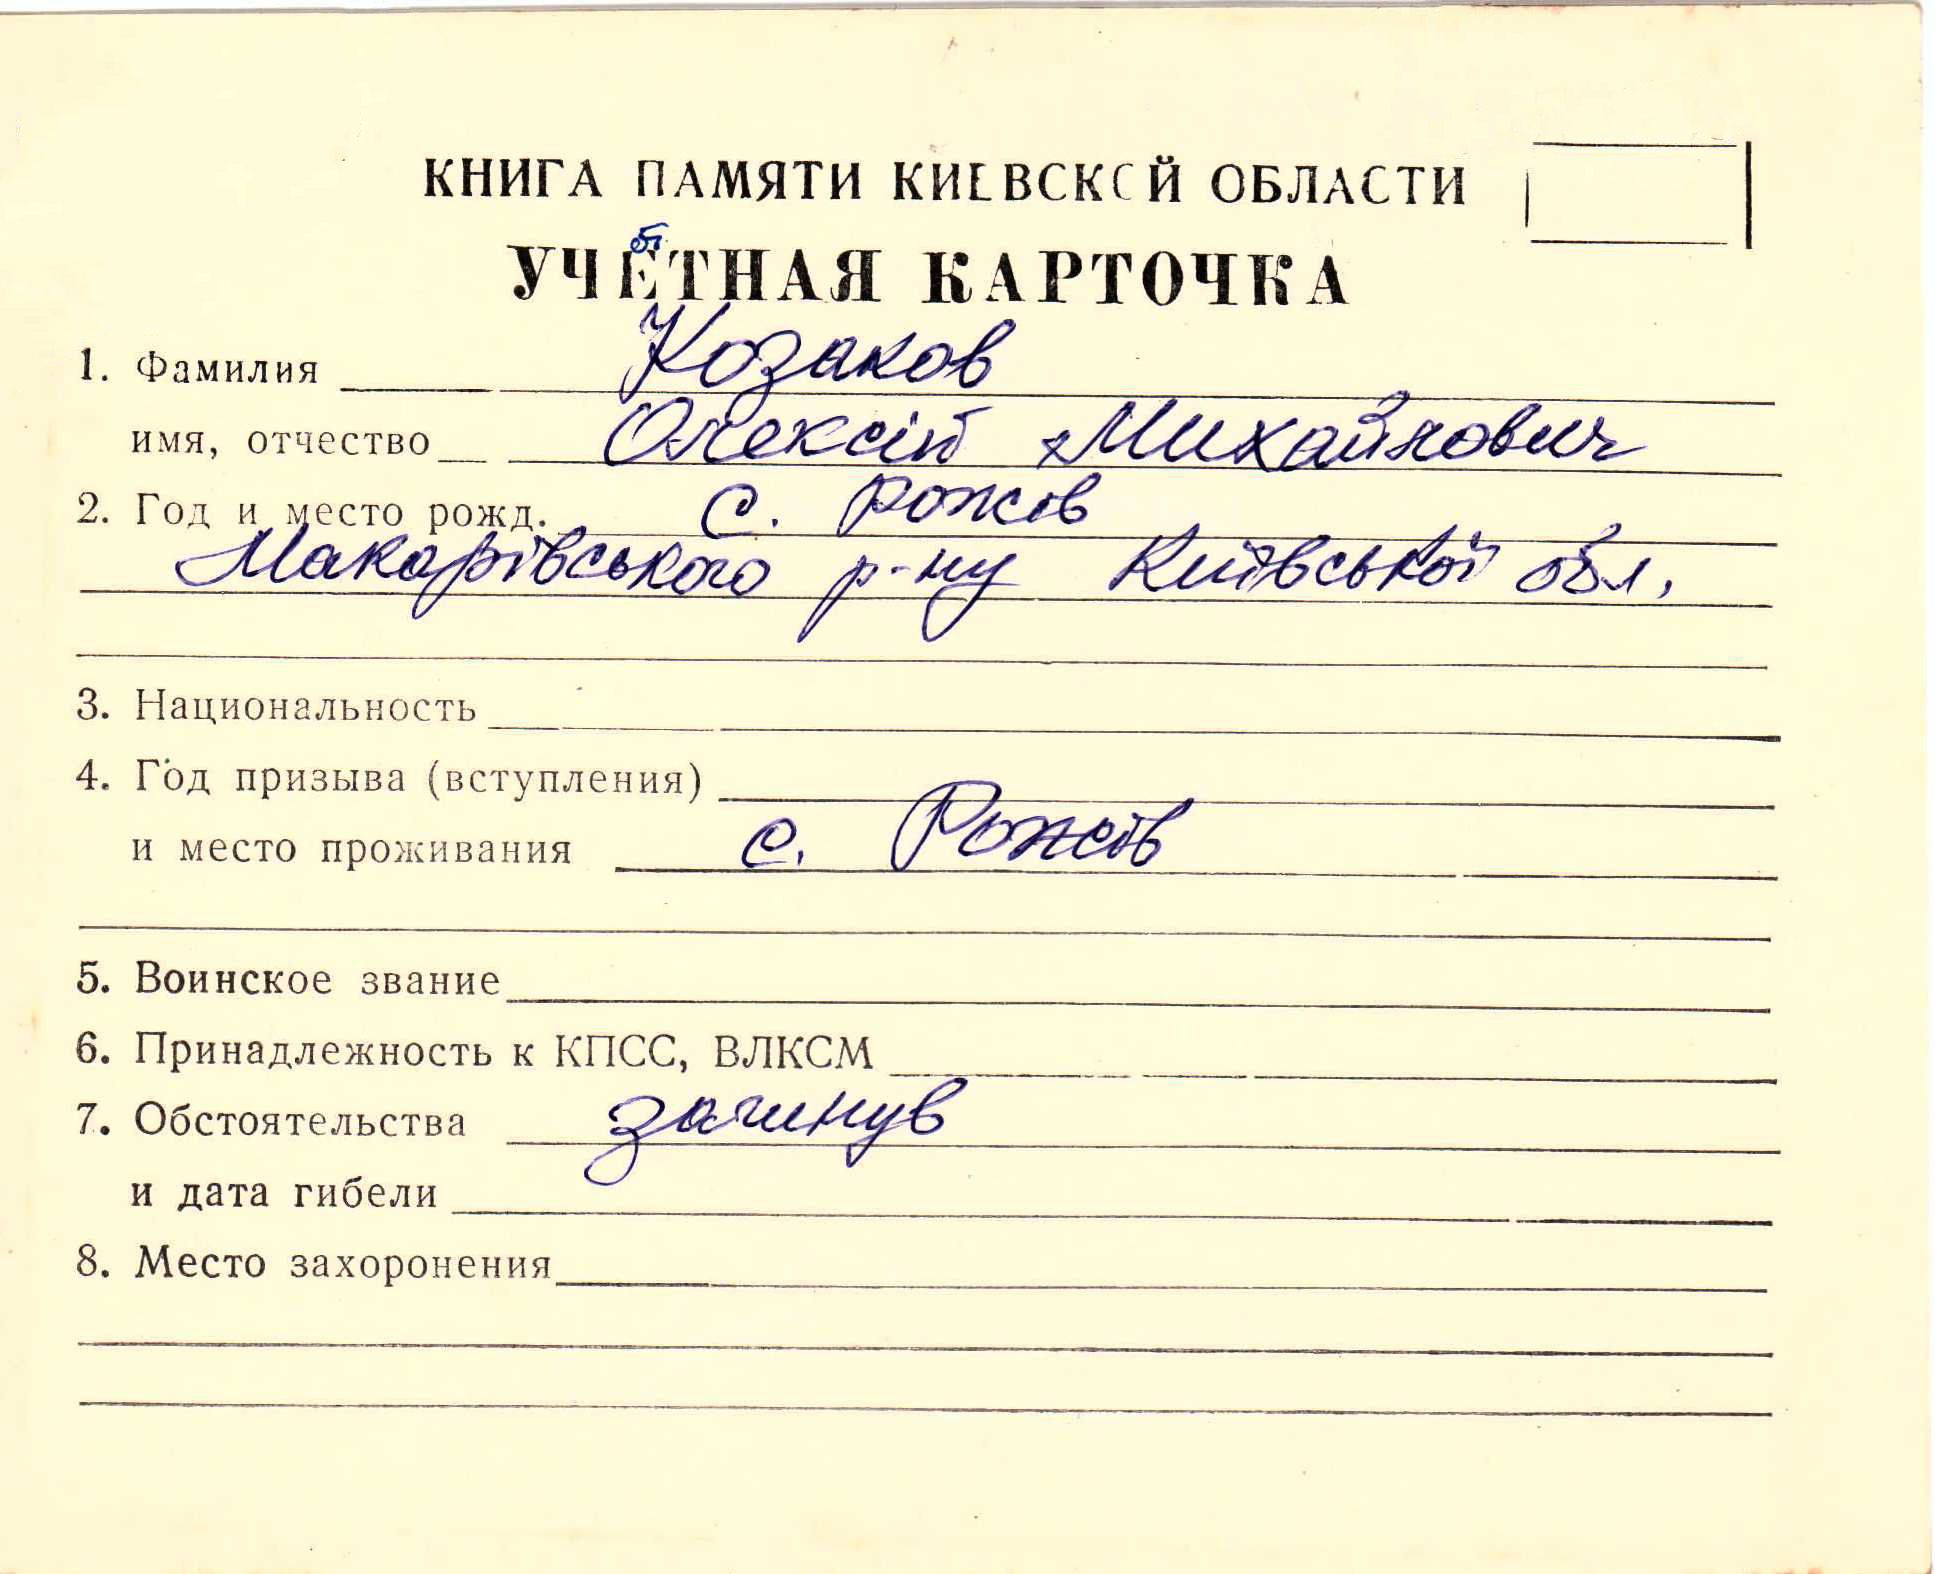 КНИГА ПАМЯТИ КИЕВСКОЙ ОБЛАСТИ
УЧЕТНАЯ КАРТОЧКА
1. Фамилия Козаков
имя, отчество Олексій Михайлович
2. Год и место рожд. с. Рожів
Макарівського р-ну Київської обл.
3. Национальность
4. Год призыва (вступления)
и место проживания с. Рожів
5. Воинское звание
6. Принадлежность к КПСС, ВЛКСМ
7. Обстоятельства загинув
и дата гибели
8. Место захоронения